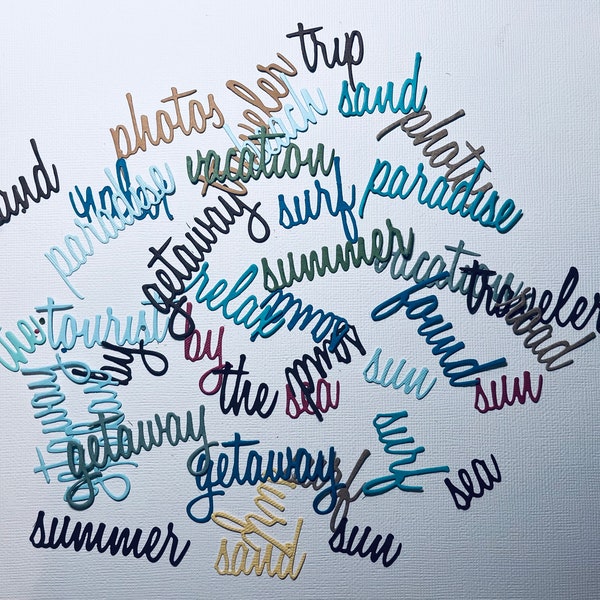 trip
sand
photos
traveler
beach
photos
vacation
and
relax
paradise
surf
paradise
getaway
summer
vacation
traveler
relax
found
road
the
tourist
by
by
sun
the
sea
sun
getaway
getaway
surf
getaway
sea
summer
sand
sun